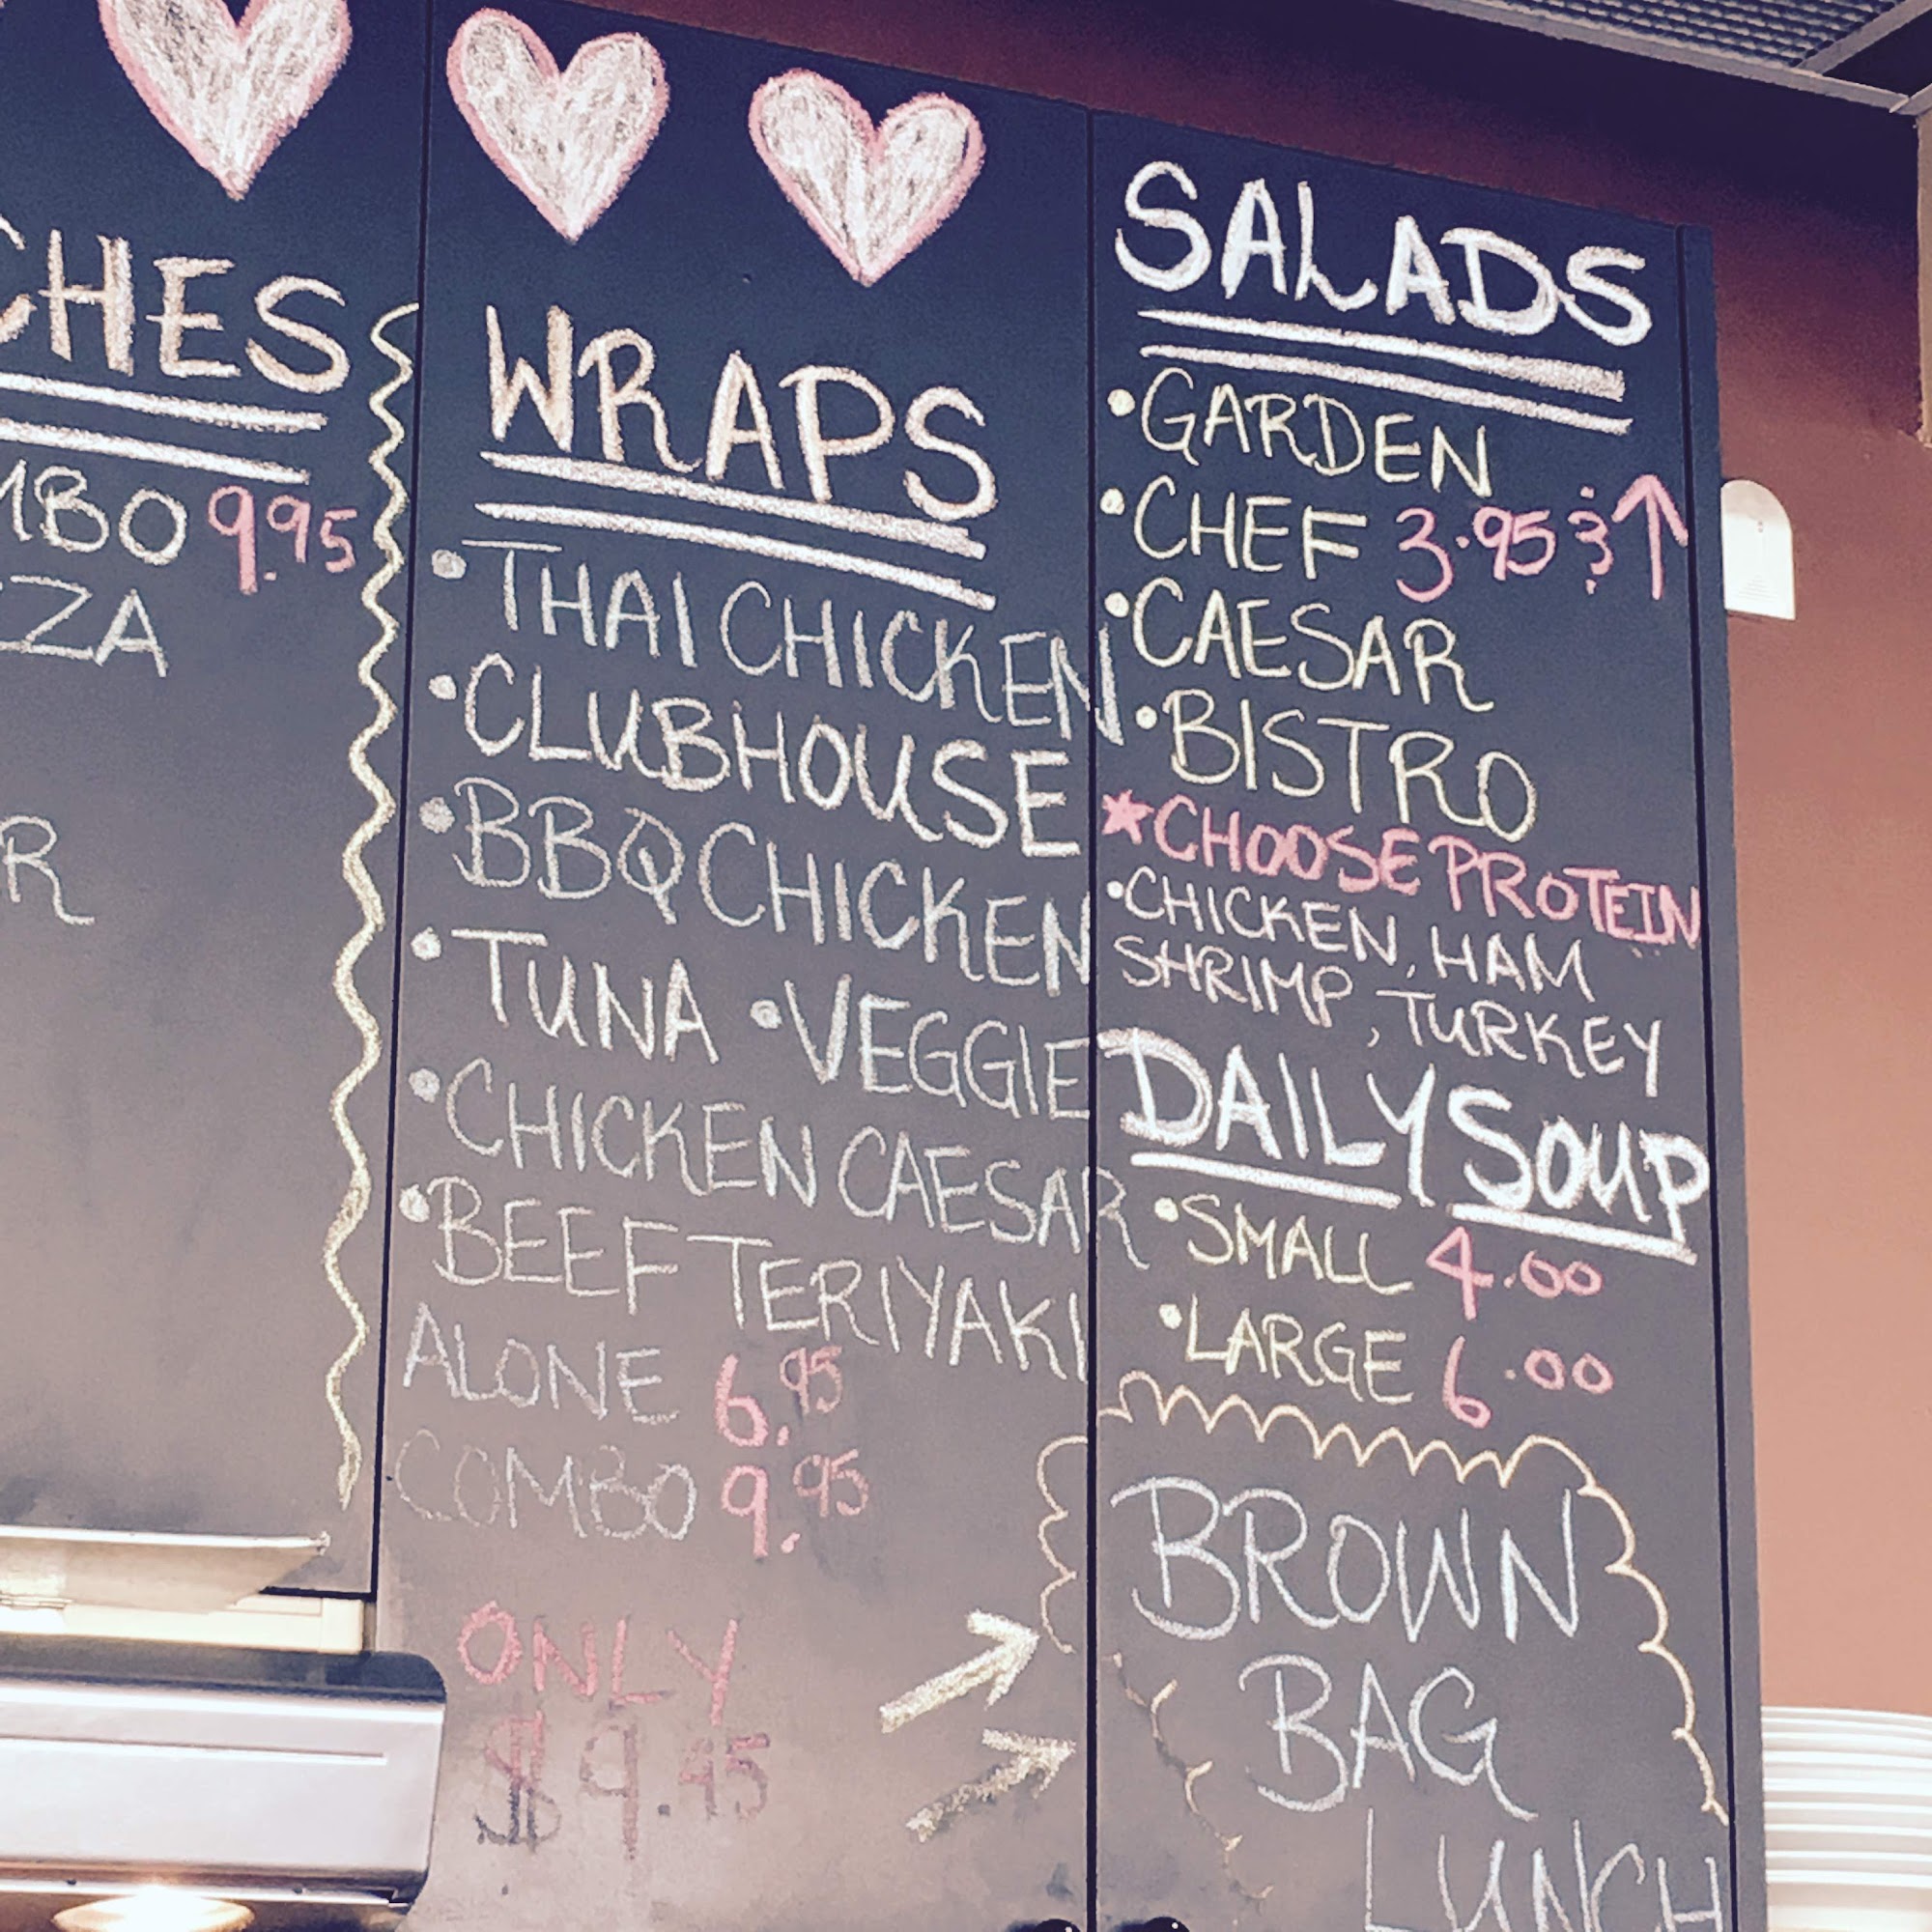 CHES
MBO 9.95
ZZA
R
WRAPS
• THAI CHICKEN
• CLUBHOUSE
• BBQ CHICKEN
• TUNA • VEGGIE
• CHICKEN CAESAR
• BEEF TERIYAKI
ALONE 6.95
COMBO 9.95
ONLY
$9.45
SALADS
• GARDEN
• CHEF 3.95 & ↑
• CAESAR
• BISTRO
★ CHOOSE PROTEIN
• CHICKEN, HAM
SHRIMP, TURKEY
DAILY SOUP
• SMALL 4.00
• LARGE 6.00
BROWN
BAG
LUNCH